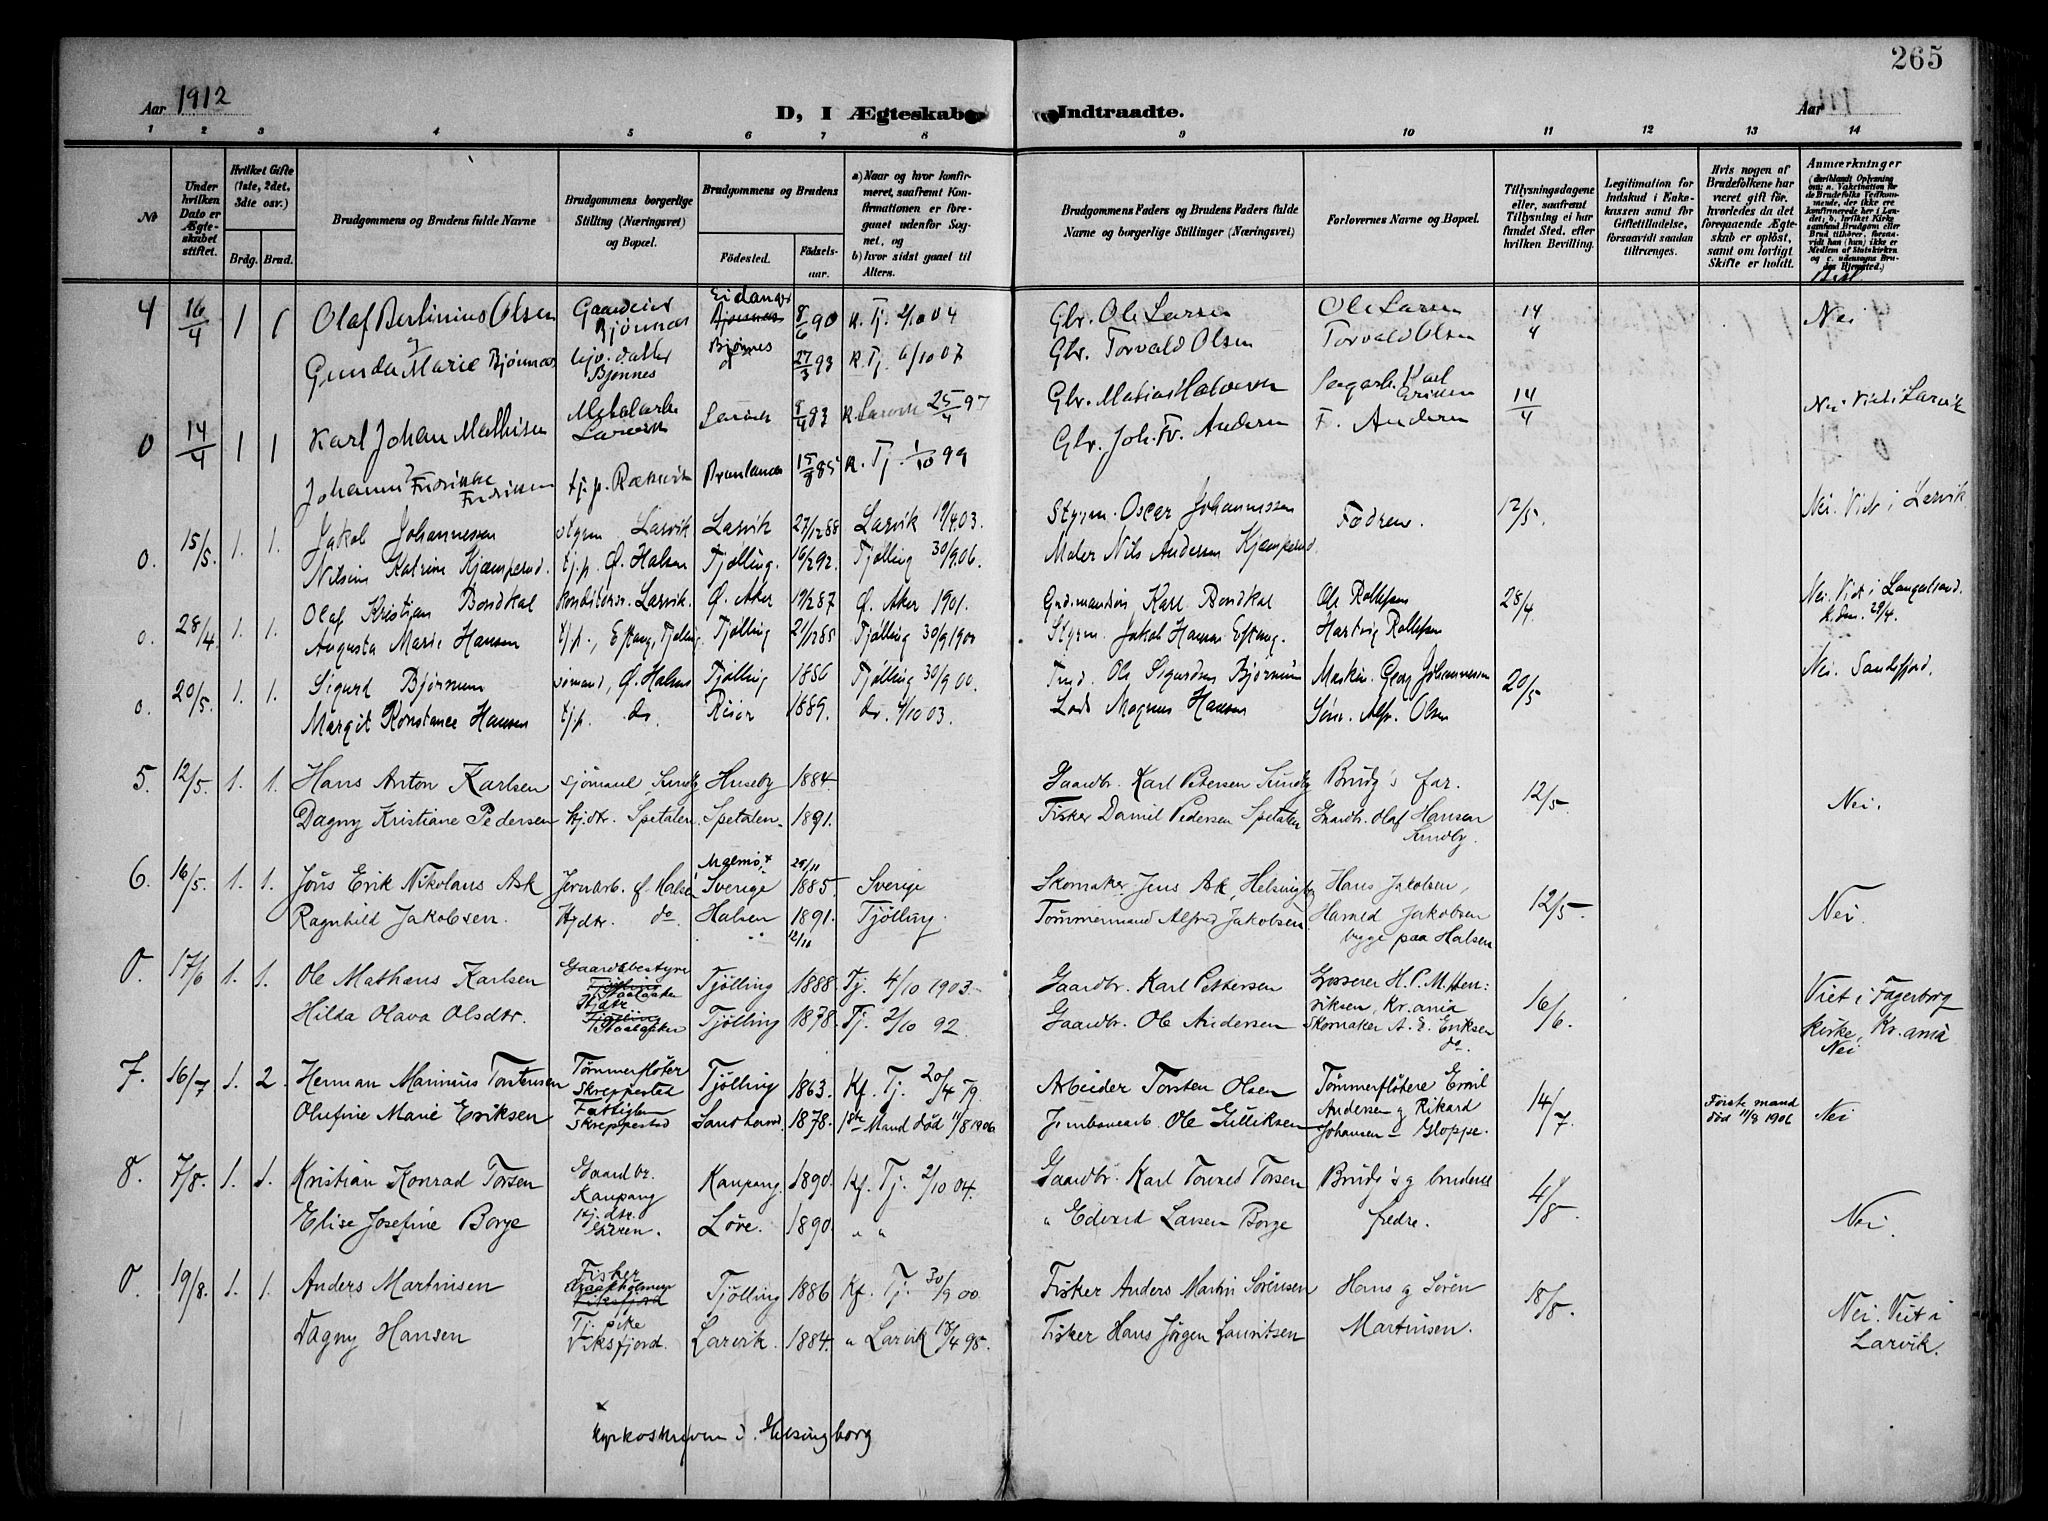 265
Aar 1912
D, I Ægteskab Indtraadte.
Aar
1 2 3 4 5 6 7 8 9 10 11 12 13 14
№
Under hvilken Dato er Ægteskabet stiftet.
Hvilket Gifte (1ste, 2det, 3die osv.)
Brdg. Brud.
Brudgommens og Brudens fulde Navne
Brudgommens borgerlige Stilling (Næringsvei) og Bopæl.
Brudgommens og Brudens
Födested.
Födselsaar.
a) Naar og hvor konfirmeret, saafremt Konfirmationen er foregaaet udenfor Sognet, og
b) hvor sidst gaaet til Alters.
Brudgommens Faders og Brudens Faders fulde Navne og borgerlige Stillinger (Næringsvei)
Forlovernes Navne og Bopæl.
Tillysningsdagene eller, saafremt Tillysning ei har fundet Sted, efter hvilken Bevilling.
Legitimation for Indskud i Enkekassen samt for Giftetilladelse, forsaavidt saadan tiltrænges.
Hvis nogen af Brudefolkene har været gift før, hvorledes da det foregaaende Ægteskab er opløst, samt om lovligt Skifte er holdt.
Anmærkninger
4 16/4 1 1 Olaf Berlinius Olsen Gaardeier Bjønnes Eidanger 8/6 90 K. Tj. 2/10 04 Gbr. Ole Larsen Ole Larsen 14/4 Nei
og
Gunda Marie Bjønnes Bjønnes Bjønnes 27/3 93 K. Tj. 6/10 07 Gbr. Torvald Olsen Torvald Olsen
0 14/4 1 1 Karl Johan Mathisen Metalarb. Larvik Larvik 83 K. Larvik 25/4 97 Gbr. Matias Halvorsen Karl Eriksen 14/4 Nei. Viet i Larvik
Johanne Fredrikke Fredriksen tj.p. 15/9 85 K. Tj. 1/10 99 Gbr. Joh. Fr. Andersen F. Andersen
0. 15/5. 1. 1. Jakob Johannessen styrm Larvik Larvik 27/12 88 Larvik 19/4.03. Styrm. Oscar Johannessen Fædrene. 12/5. Nei. Viet i Larvik
Nilsine Katrine Kjæmperud. tj.p. Ø. Halsen Tjølling. 16/2 92. Tjølling 30/9.06. Maler Nils Andersen Kjæmperud.
0. 28/4 1. 1. Olaf Kristian Bondkal Konditorsv. Larvik. Ø. Aker 19/2 87 Ø. Aker 1901. Karl Bondkal Ole Rollefsen 28/4. Nei. Viet i Langestrand. 28/4.
Augusta Marie Hansen tj.p., Eftang, Tjølling Tjølling 21/12 85 Tjølling 30/9 1900 Styrm. Jakob Hansen Eftang. Hartvig Rollefsen
0. 20/5. 1. 1. Sigurd Bjørnum sømand, Ø. Halsen Tjølling 1886 Tjølling 30/9 00. Ole Sigurdsen Bjørnum Maskin. Georg Johannessen 20/5 Nei. Sandefjord.
Margit Konstance Hansen tj.p. do. Risør 1889. do. 4/10 03. Lods Magnus Hansen Alfr. Olsen
5. 12/5. 1. 1. Hans Anton Karlsen sjömand, Sundby Huseby 1884. Gaardbr. Karl Petersen Sundby Brudg's far. 12/5. Nei.
Dagny Kristiane Pedersen Hjdtr. Spetalen Spetalen. 1891. Fisker Daniel Pedersen Spetalen Gaardbr. Olaf Hansen Sundby
6. 16/5. 1. 1. Jöns Erik Nikolaus Ask Jernarb. Ø. Halsen Malmö + Sverige 29/11 1885. Sverige Skomaker Jens Ask, Helsingborg Hans Jakobsen, 12/5. Nei.
Ragnhild Jakobsen. Hjdtr. do Halsen 1891. 12/11 Tjølling. Tømmermand Alfred Jakobsen. Harald Jakobsen begge paa Halsen
0. 17/6 1. 1. Ole Mathæus Karlsen Gaardsbestyrer Tjølling 1888. Tj. 4/10 1903. Gaardbr. Karl Pettersen Grosserer H. P. M. Henriksen, Kr.ania 16/6. Viet i Fagerborg kirke, Kr.ania
Hilda Olava Olsdtr. Hjdtr. Tjølling 1878. Tj. 2/10 92. Gaardbr. Ole Andersen Skomaker A. E. Eriksen do. Nei
7. 16/7 1. 2. Herman Marinius Torstensen Tømmerfløter Skreppestad Tjølling 1863. Kf. Tj. 20/4 79. Arbeider Torsten Olsen Tømmerfløtere Emil Andersen og Rikard Johansen – Gloppe. 14/7 Første mand død 11/8 1906 Nei
Olufine Marie Eriksen Skreppestad Sandherred 1878. 1ste Mand død 11/8 1906 Jernbanearb. Ole Gulliksen
8. 7/8. 1. 1. Kristian Konrad Torsen Gaardbr. Kaupang Kaupang 1890. Kf. Tj. 2/10 04. Gaardbr. Karl Torvald Torsen Brudg's og brudens fedre. 4/8. Nei.
Elise Josefine Borge Hj.dtr. Løve. 1890 " " " Edvard Larsen Borge
0. 19/8. 1. 1. Anders Martinsen Fisker Viksfjord Tjølling 1886 Kf. Tj. 30/9 00. Fisker Anders Martin Sörensen Hans og Sören Martinsen. 18/8. Nei. Viet i Larvik.
Dagny Hansen Tj. pike Viksfjord. Larvik. 1884. " Larvik 18/4 98. Fisker Hans Jørgen Lauritsen
Kyrkoskriven i Helsingborg